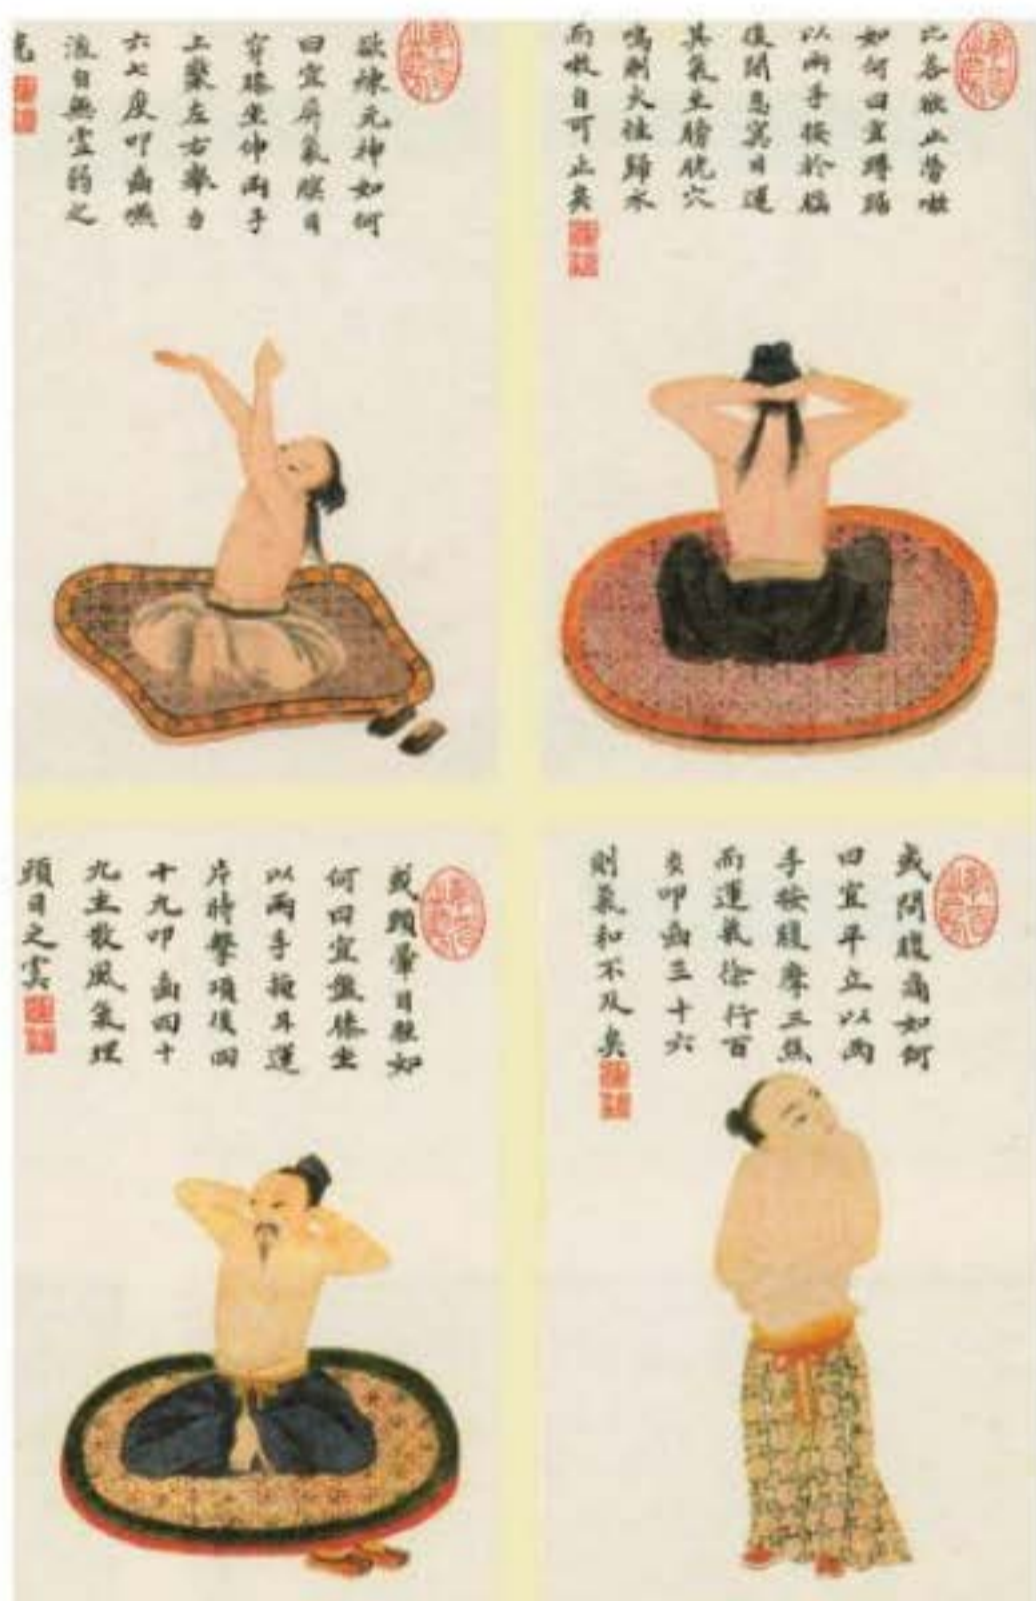 欲止勞嗽
如何曰宜蹲踞
以兩手按於腦
後閉息冥目運
其氣至膀胱穴
鳴則火往歸水
而嗽自可止矣
欲煉元神如何
曰宜屏氣瞑目
穿膝坐伸兩手
上擎左右舉力
六七度叩齒嚥
液自無虛弱之
或問腹痛如何
曰宜平立以兩
手按腹摩三焦
而運氣徐行百
叩齒三十六
則氣和不及矣
或頭暈目眩如
何曰宜盤膝坐
以兩手掩耳運
片時擊項後四
十九叩齒四十
九主散風氣理
頭目之害